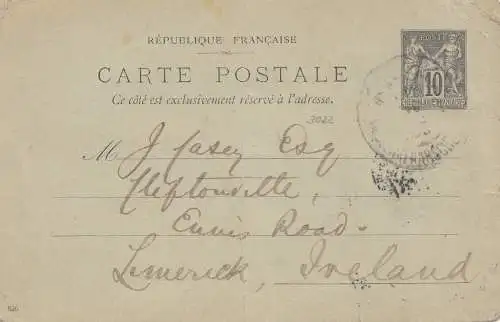 RÉPUBLIQUE FRANÇAISE
CARTE POSTALE
Ce côté est exclusivement réservé à l'adresse.
3022
M J Casey Esq
Cleftonville,
Ennis Road.
Limerick, Ireland
POSTES
10